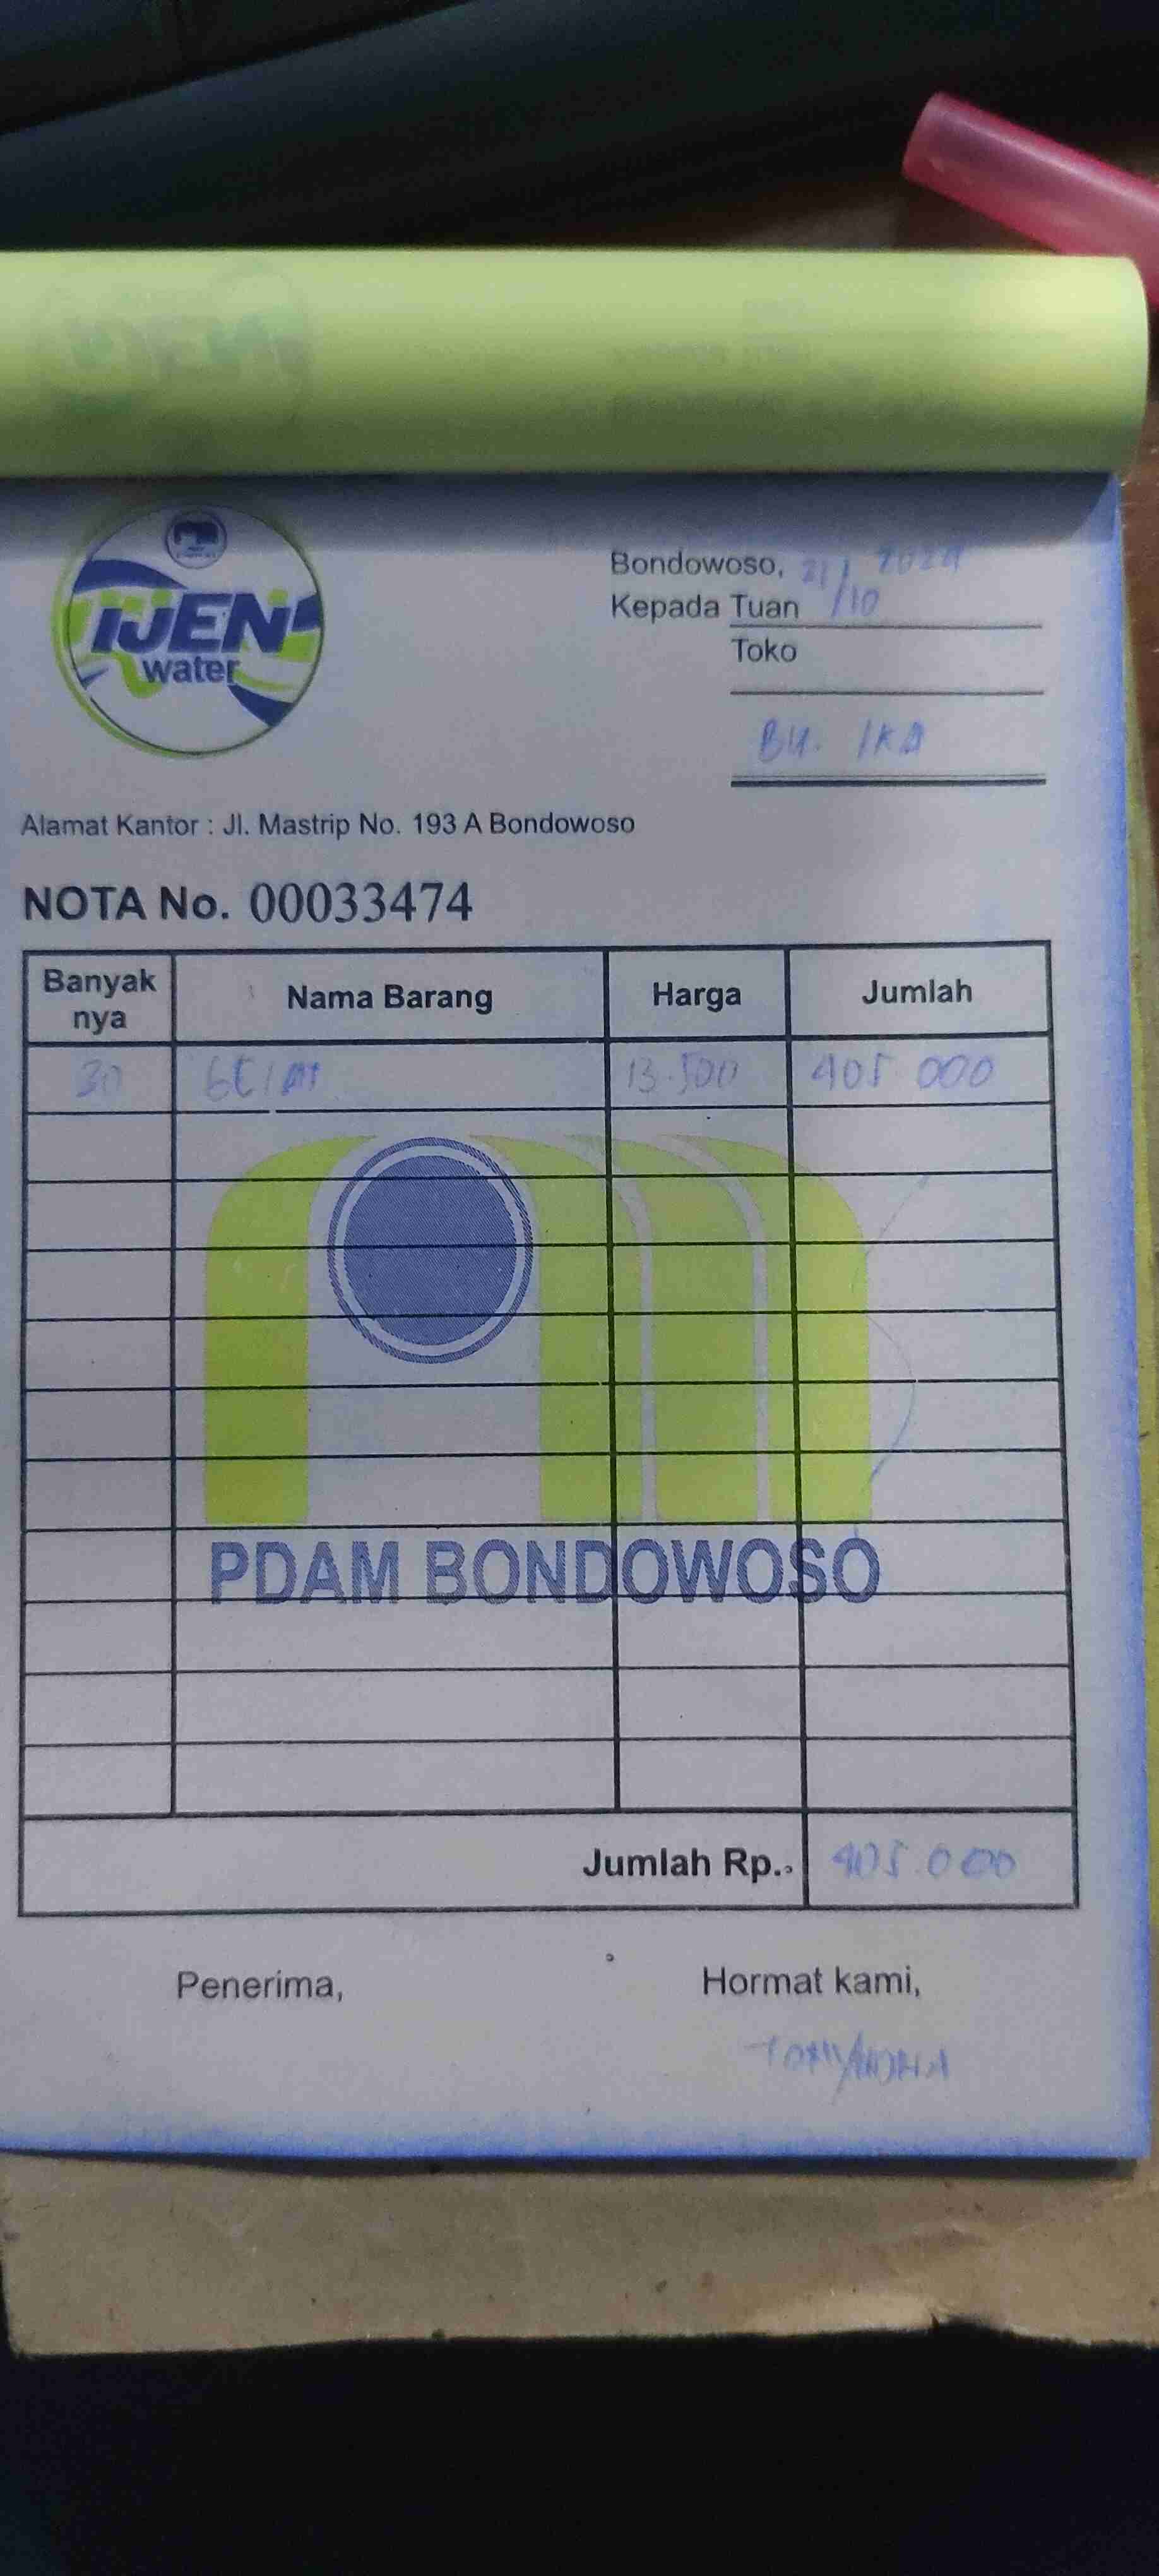 IJEN
water
Bondowoso, 21/10 2024
Kepada Tuan
Toko
BU. IKA
Alamat Kantor : Jl. Mastrip No. 193 A Bondowoso
NOTA No. 00033474
Banyak nya Nama Barang Harga Jumlah
30 GELAS 13.500 405 000
PDAM BONDOWOSO
Jumlah Rp. 405.000
Penerima, Hormat kami,